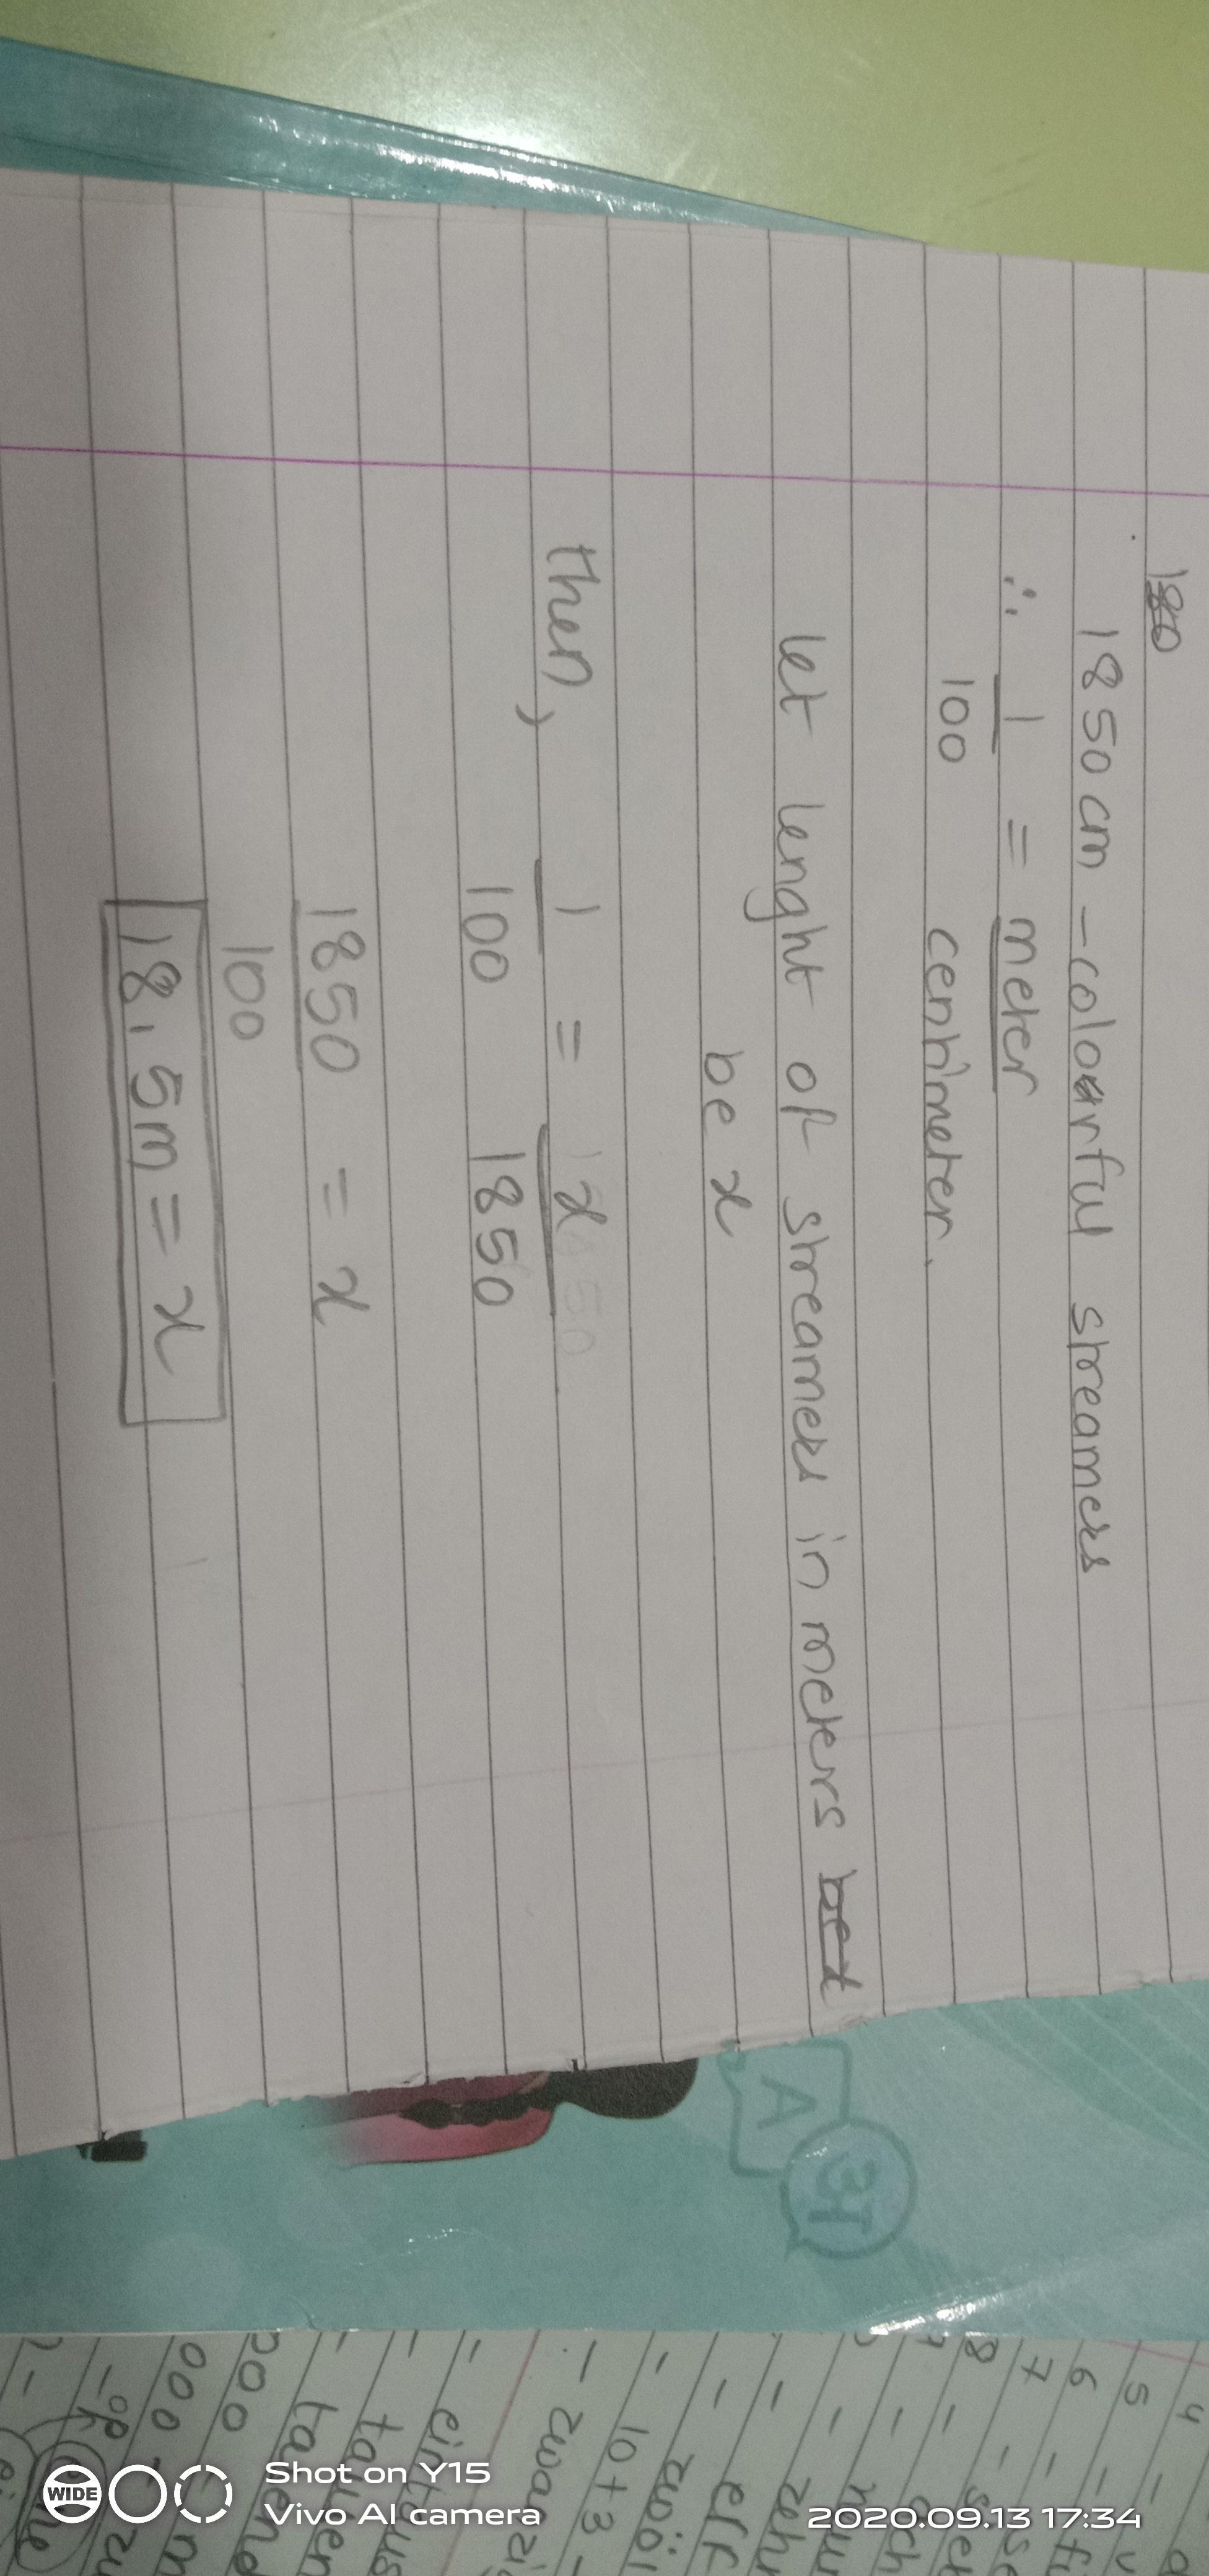 1850cm - colourful streamers
∴ 1/100 = meter/centimeter.
let lenght of streamers in meters
be x
then, 1/100 = x/1850
1850/100 = x
18.5m = x
A अ
4
5
6
7
8
10+3
WIDE
Shot on Y15
Vivo AI camera
2020.09.13 17:34